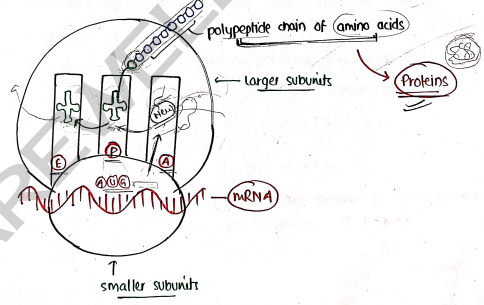 polypeptide chain of amino acids
larger subunits
Proteins
New
E P A
AUG
mRNA
smaller subunits